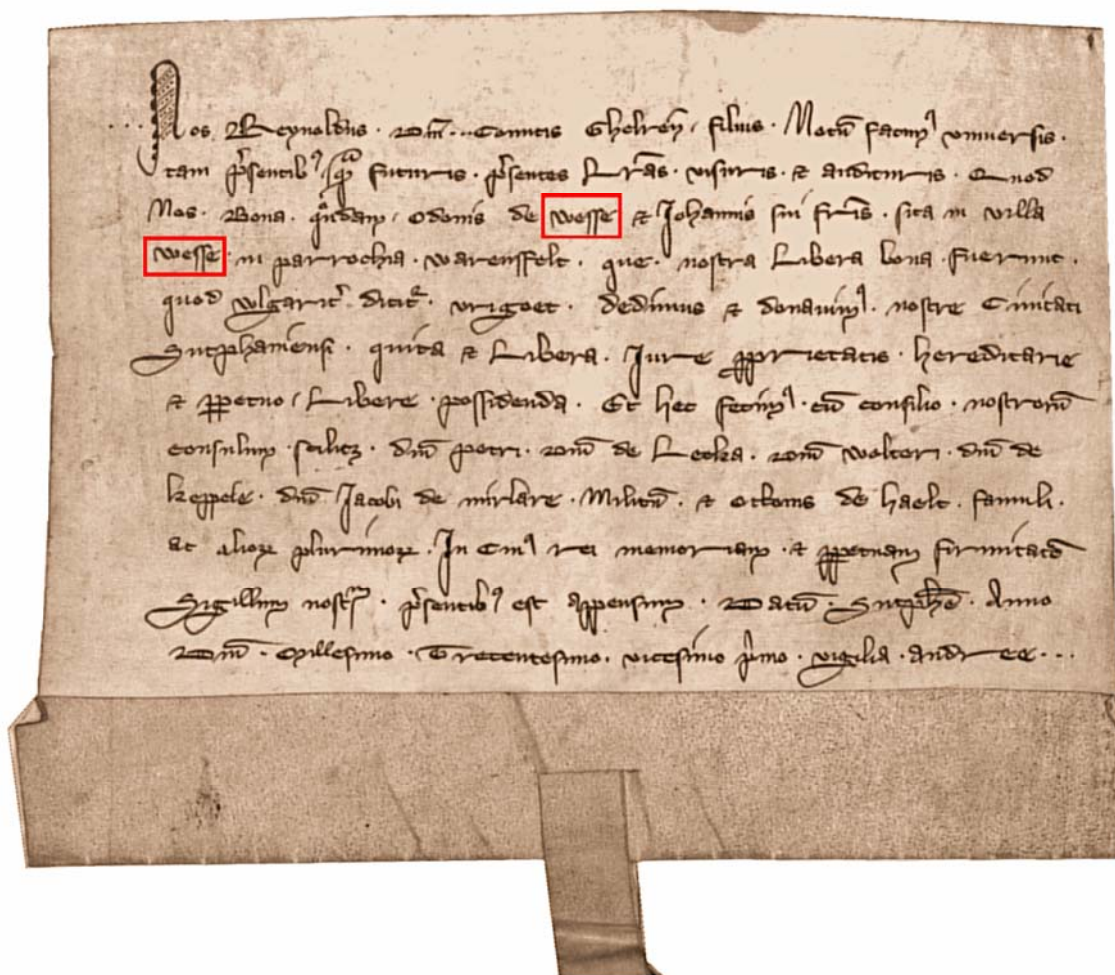 Nos Reynoldus . Dn̄i . .. Comitis Ghelreñ . filius . Notū facimꝰ vniuersis .
tam p̄sentibꝰ quā futuris . p̄sentes Lr̄as . visuris . et audituris . Quod
Nos . Bona . quōdam . Odonis de wesse et Johannis sui fr̄is . sita in villa
wesse . in parrochia . warensfelt . que . nostra Libera bona fuerunt .
quod vlgarit̄ dicit̄ . vrigoet . dedimus et donauimꝰ . nostre Ciuitati
Sutphaniensi . quita et Libera . Jure ꝓprietatis . hereditarie
et ꝑpetuo . Libere . possidenda . Et hec fecimꝰ . cū consilio . nostrorū
consulum . scilicꝫ . dn̄i petri . Dn̄i de Lecka . Dn̄i wolteri . dn̄i de
keppele . dn̄i Jacobi de mirlare . Militū . et . de haelt . famuli .
ac alioꝝ plurimoꝝ . In Cuiꝰ rei memoriam . et ꝑpetuam firmitatē
Sigillum nostrum . p̄sentibꝰ est appensum . Datū . Sutphē . Anno
Dn̄i . Millesimo . Trecentesimo . vicesimo p̄mo . vigilia . andree . . .